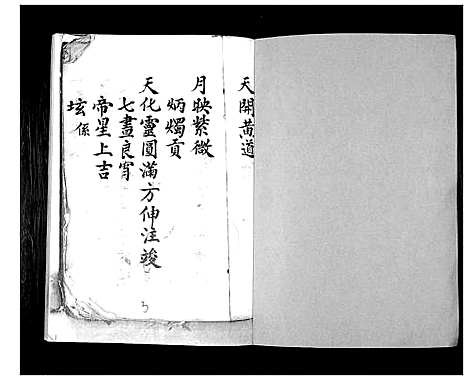 天開黃道
月映紫微
炳燭貢
天化靈圓滿方伸注竣
七晝良宵
帝星上吉
垓係
3